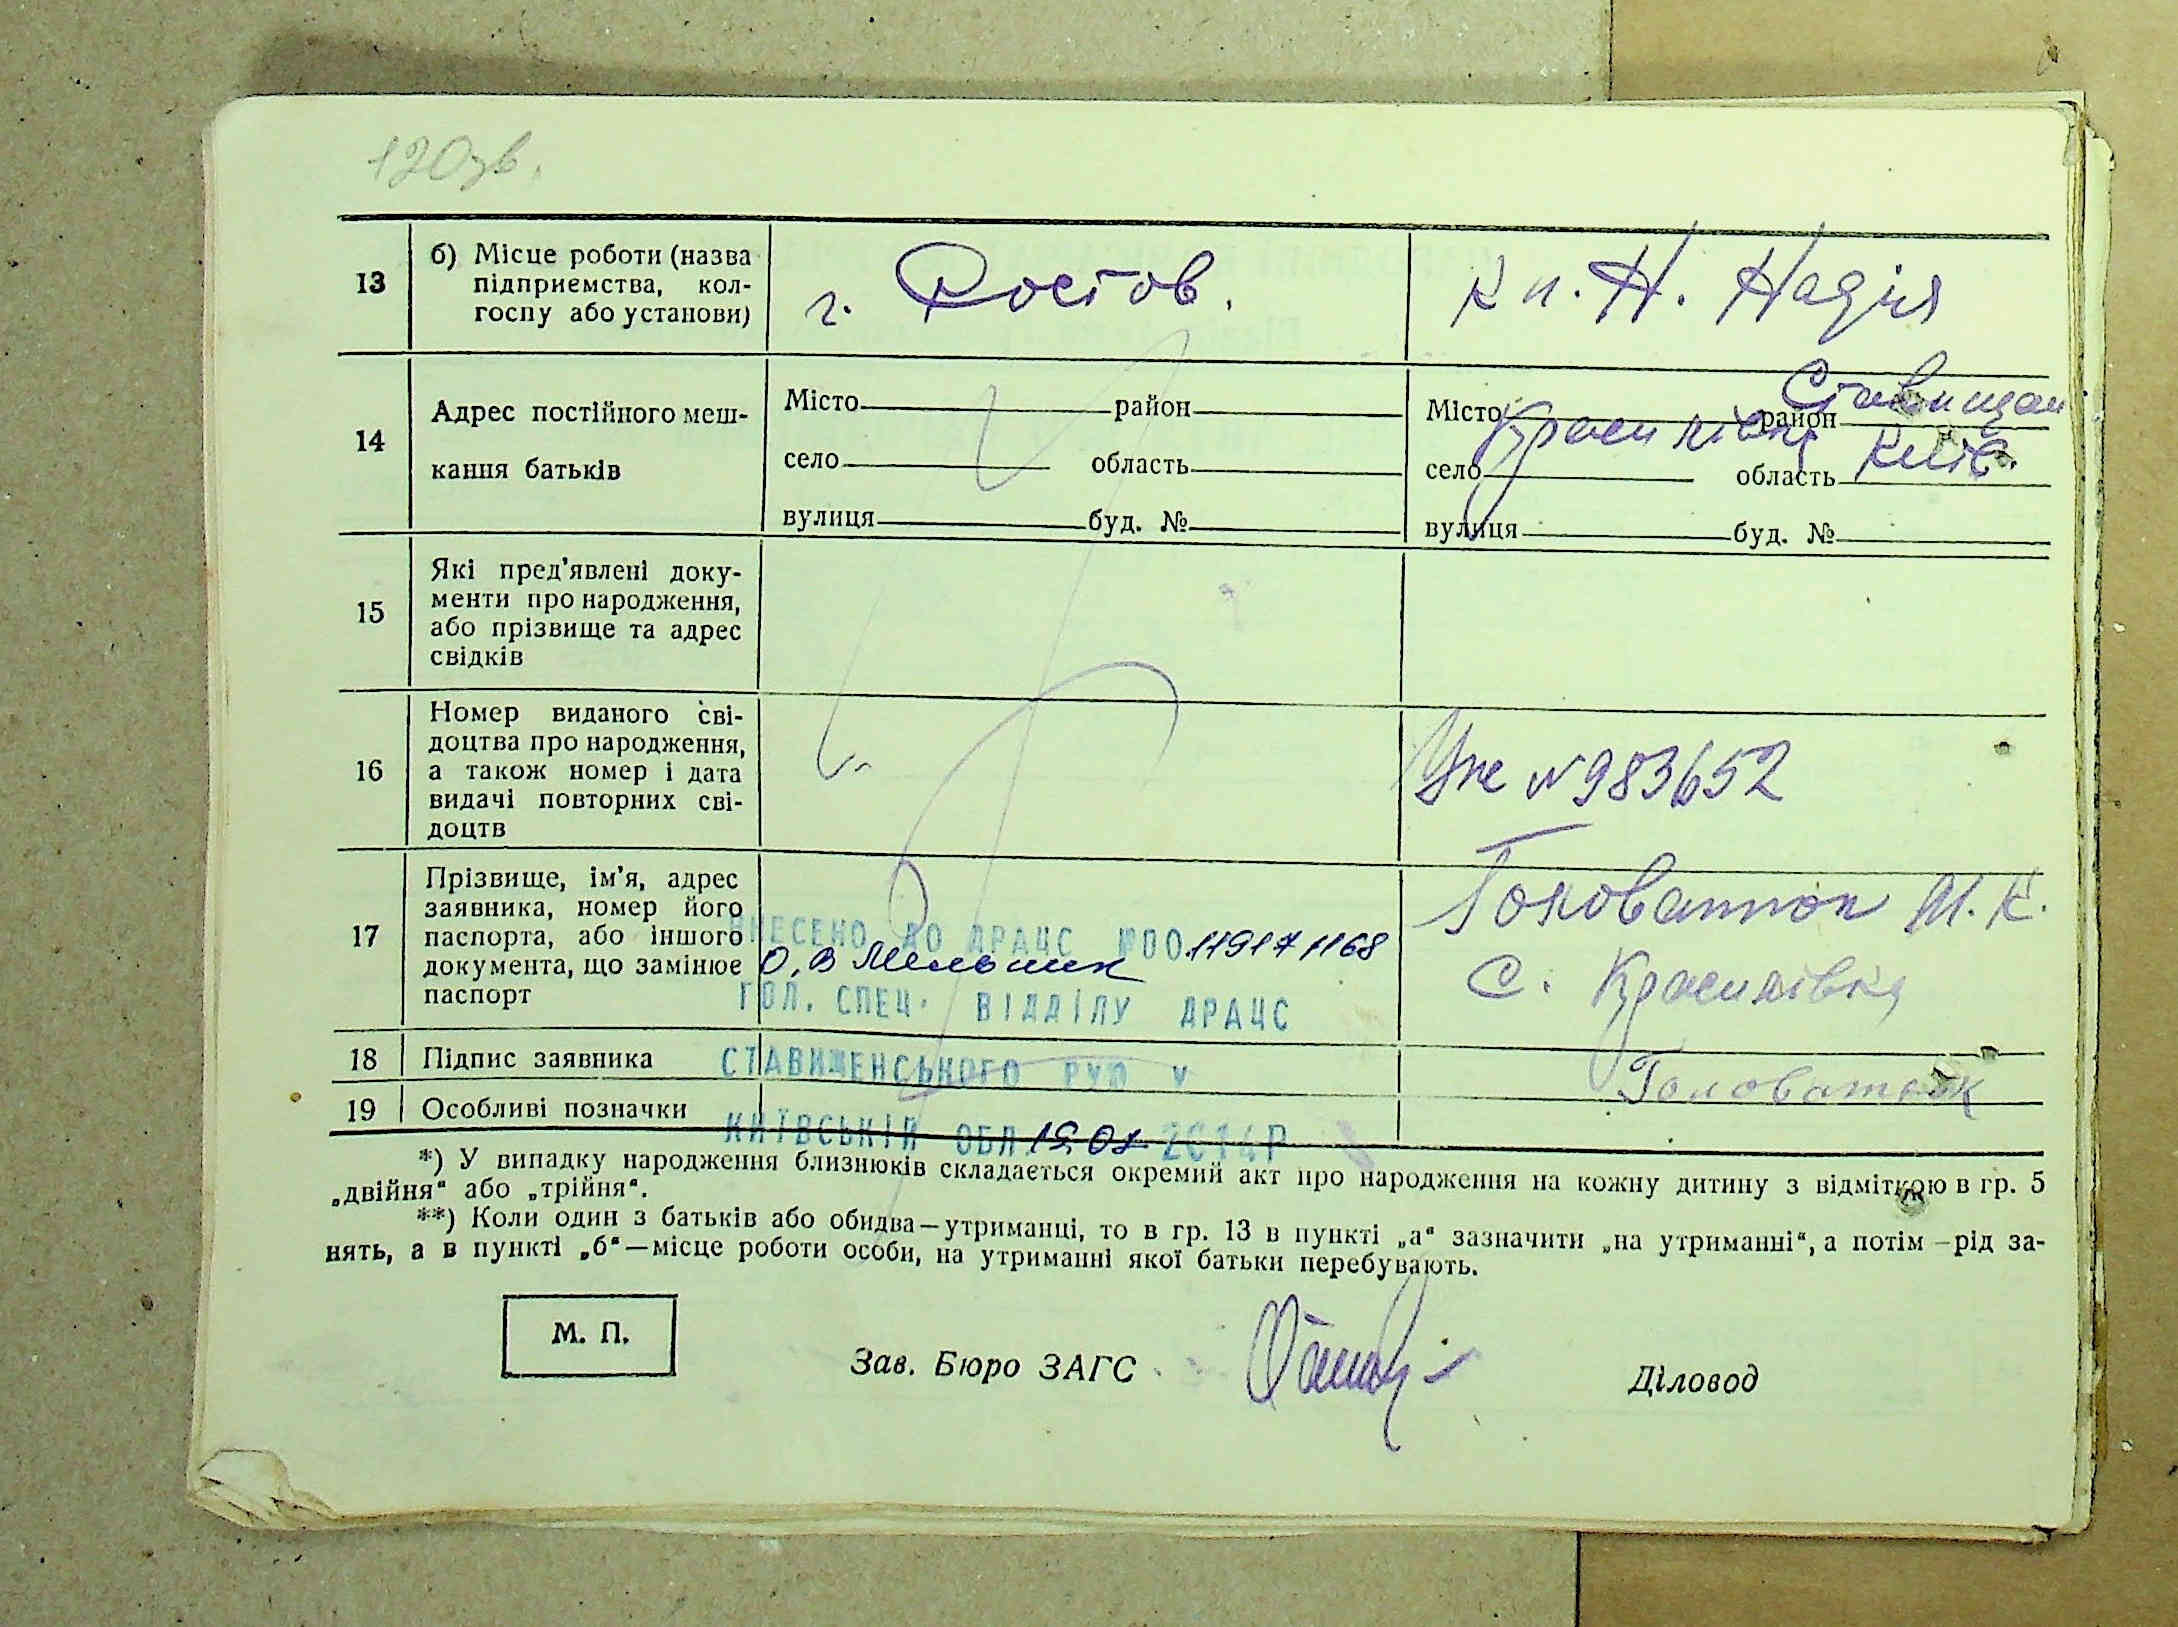 120 зв.
13 б) Місце роботи (назва підприємства, кол-госпу або установи) г. Ростов. кп. Н. Надія
14 Адрес постійного меш-кання батьків
Місто район Місто район Ставищан
село область село Красилівка область Київ.
вулиця буд. № вулиця буд. №
15 Які пред'явлені доку-
менти про народження,
або прізвище та адрес
свідків
16 Номер виданого сві-
доцтва про народження,
а також номер і дата
видачі повторних сві-
доцтв
№ 983652
17 Прізвище, ім'я, адрес
заявника, номер його
паспорта, або іншого
документа, що замінює
паспорт
Головатюк М. К.
с. Красилівка
ВНЕСЕНО ДО ДРАЦС №00 119171168
О. В Мельник
ГОЛ. СПЕЦ. ВІДДІЛУ ДРАЦС
СТАВИЩЕНСЬКОГО РУЮ У
КИЇВСЬКІЙ ОБЛ. 2014Р
18 Підпис заявника Головатюк
19 Особливі позначки
*) У випадку народження близнюків складається окремий акт про народження на кожну дитину з відміткою в гр. 5
„двійня“ або „трійня“.
**) Коли один з батьків або обидва—утриманці, то в гр. 13 в пункті „а“ зазначити „на утриманні“, а потім —рід за-
нять, а в пункті „б“—місце роботи особи, на утриманні якої батьки перебувають.
М. П.
Зав. Бюро ЗАГС Діловод